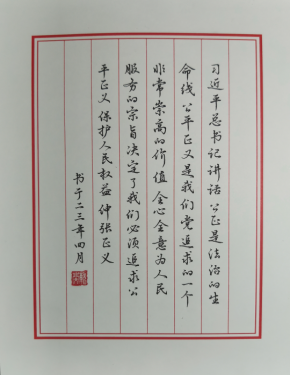 习近平总书记讲话 公正是法治的生
命线 公平正义是我们党追求的一个
非常崇高的价值 全心全意为人民
服务的宗旨决定了我们必须追求公
平正义 保护人民权益 伸张正义
书于二三年四月